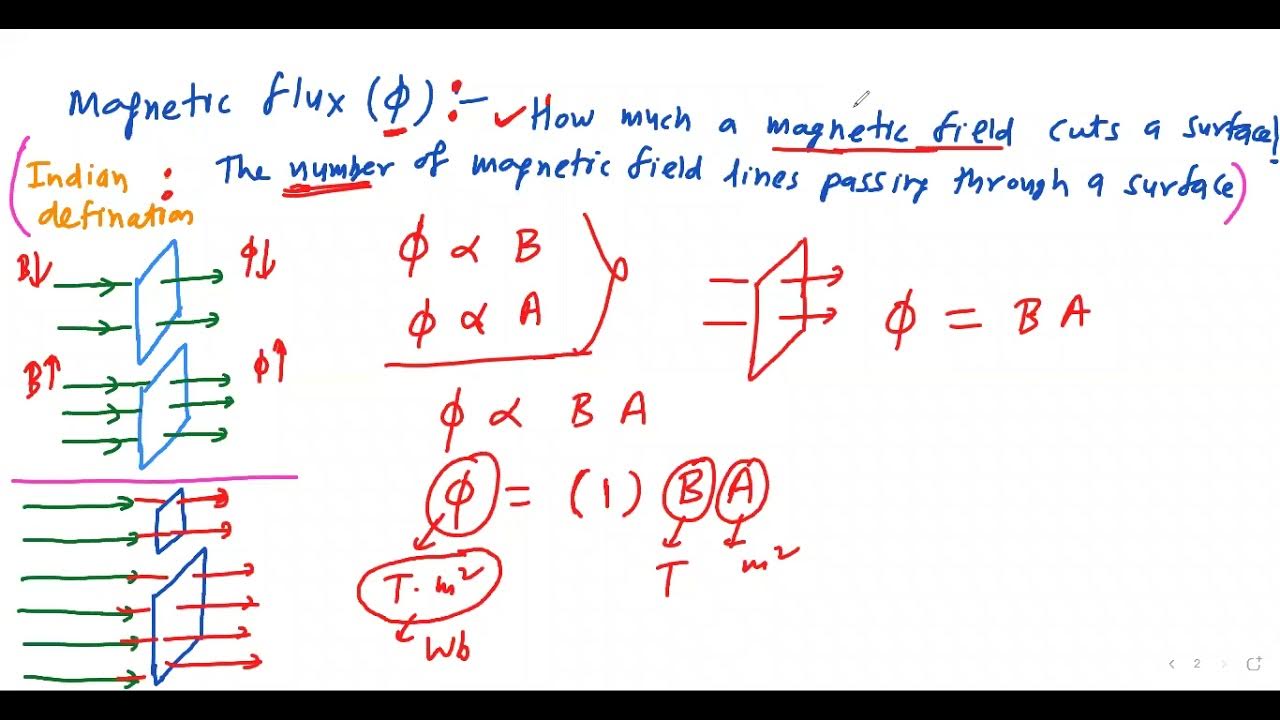 Magnetic flux (ϕ) :- ✓ How much a magnetic field cuts a surface!
(Indian defination : The number of magnetic field lines passing through a surface)
B↓ ϕ↓
ϕ ∝ B
ϕ ∝ A
ϕ = B A
B↑ ϕ↑
ϕ ∝ B A
ϕ = (1) B A
T m²
T·m²
Wb
2